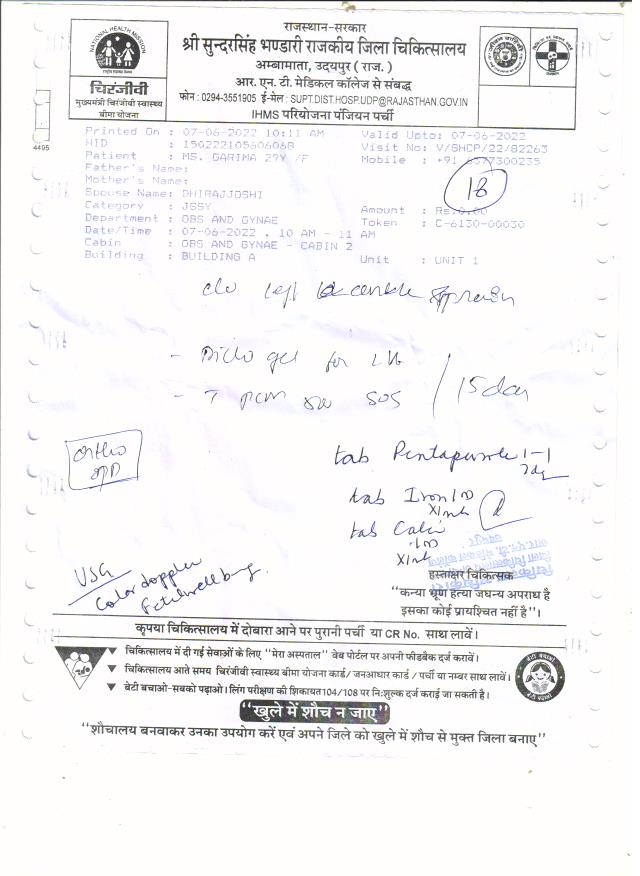 राजस्थान-सरकार
श्री सुन्दरसिंह भण्डारी राजकीय जिला चिकित्सालय
अम्बामाता, उदयपुर ( राज. )
आर. एन. टी. मेडिकल कॉलेज से संबद्ध
फोन : 0294-3551905 ई-मेल : SUPT.DIST.HOSP.UDP@RAJASTHAN.GOV.IN
IHMS परियोजना पंजियन पर्ची
NATIONAL HEALTH MISSION
चिरंजीवी
मुख्यमंत्री चिरंजीवी स्वास्थ्य
बीमा योजना
4495
Printed On : 07-06-2022 10:11 AM Valid Upto: 07-06-2022
HID : 150222105606068 Visit No: V/GHCP/22/82263
Patient : MS. GARIMA 29Y /F Mobile : +91 6377300235
Father's Name:
Mother's Name:
Spouse Name: DHIRAJJOSHI
18
Category : JSSY Amount : Rs:0.00
Department : OBS AND GYNAE Token : C-6130-00030
Date/Time : 07-06-2022 , 10 AM - 11 AM
Cabin : OBS AND GYNAE - CABIN 2
Building : BUILDING A Unit : UNIT 1
c/o left ankle sprain
- Diclo gel for L/A
- T pcm SOS / 15 day
Ortho
OPD
tab 1-1
tab Iron 1 OD
tab
USG
Color doppler
Fetal well being.
हस्ताक्षर चिकित्सक
"कन्या भ्रूण हत्या जघन्य अपराध है
इसका कोई प्रायश्चित नहीं है"।
कृपया चिकित्सालय में दोबारा आने पर पुरानी पर्ची या CR No. साथ लावें।
▼ चिकित्सालय में दी गई सेवाओं के लिए "मेरा अस्पताल" वेब पोर्टल पर अपनी फीडबैक दर्ज करावें।
▼ चिकित्सालय आते समय चिरंजीवी स्वास्थ्य बीमा योजना कार्ड/ जनआधार कार्ड / पर्ची या नम्बर साथ लावें।
▼ बेटी बचाओ-सबको पढ़ाओ। लिंग परीक्षण की शिकायत 104/108 पर नि:शुल्क दर्ज कराई जा सकती है।
"खुले में शौच न जाए"
"शौचालय बनवाकर उनका उपयोग करें एवं अपने जिले को खुले में शौच से मुक्त जिला बनाए"